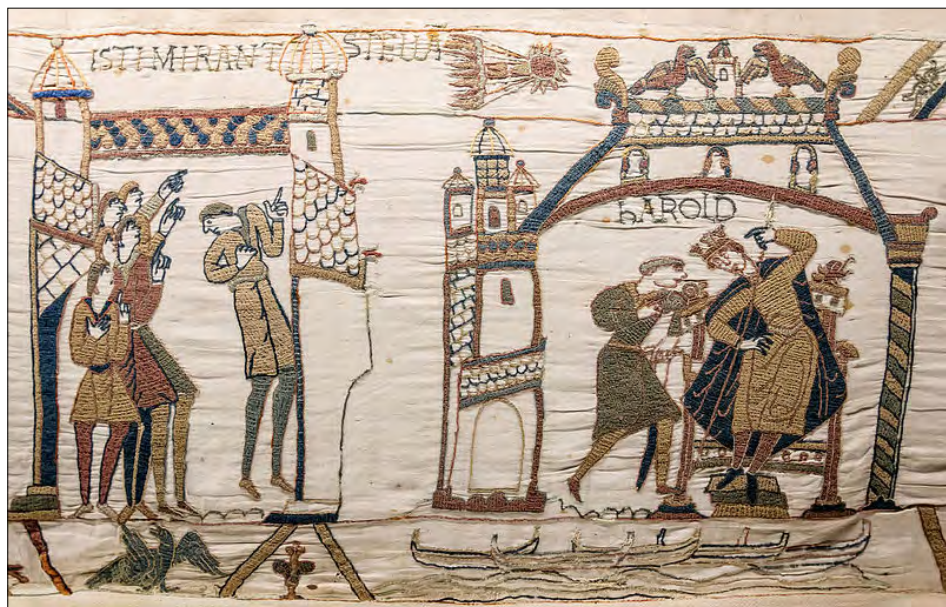 ISTI MIRANT STELLA
HAROLD